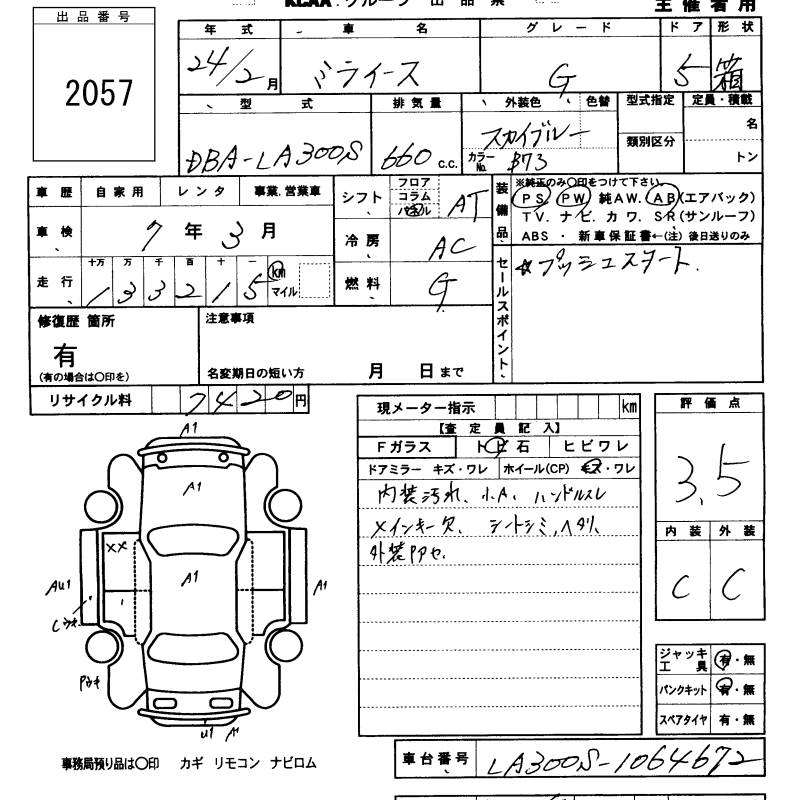 KCAA.グループ 出品票
主催者用
出品番号
2057
年式 車名 グレード ドア 形状
24/2月 ミライース G 5 箱
型式 排気量 外装色 色替 型式指定 定員・積載
DBA-LA300S 660 c.c. スカイブルー 名
類別区分
カラーNo. B73 トン
車歴 自家用 レンタ 事業.営業車
シフト フロア コラム パネル AT
装備品 ※純正のみ〇印をつけて下さい。
PS PW 純AW. AB(エアバック)
TV. ナビ. カワ. SR(サンルーフ)
ABS ・ 新車保証書←(注) 後日送りのみ
車検 7年3月
冷房 AC
走行 十万 万 千 百 十 一
133215 km マイル
燃料 G
セールスポイント ☆プッシュスタート.
修復歴 箇所
有
(有の場合は〇印を)
注意事項
名変期日の短い方 月 日まで
リサイクル料 7420円
現メーター指示 km
【査定員記入】
Fガラス トビ石 ヒビワレ
ドアミラー キズ・ワレ ホイール(CP) キズ・ワレ
内装汚れ、小A、ハンドルスレ
メインキー欠、シートシミ,ヘタリ、
外装PPセ.
評価点
3.5
内装 外装
C C
A1
A1
××
A1
AU1
A1
Pウキ
U1 A1
ジャッキ工具 有・無
パンクキット 有・無
スペアタイヤ 有・無
事務局預り品は〇印 カギ リモコン ナビロム
車台番号 LA300S-1064672